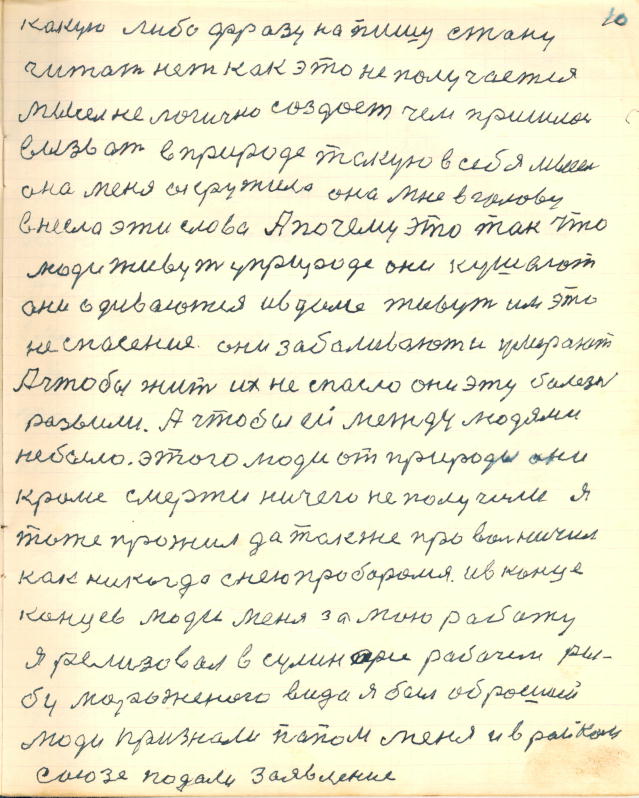 10
какую либо фразу напишу стану
читат нет как это не получается
мысел не логично создоет чем пришлос
вызват в природе такую в себя мысел
она меня окружила она мне в голову
внесла эти слова А почему это так что
люди живут у природе они кушают
они одиваются и в доме живут им это
не спасение. они забаливают и умирают
А чтобы жит их не спасло они эту болезн
развили. А чтобы ей между людями
небыло. этого люди от природы они
кроме смерти ничего не получили я
тоже прожил да также про волничил
как никогда снею проборолся. и в конце
концев люди меня за мою работу
я релизовал в сулин оре рабачем ры-
бу мароженого вида я был обросший
люди признали папом меня и в райком
союзе подали заявление